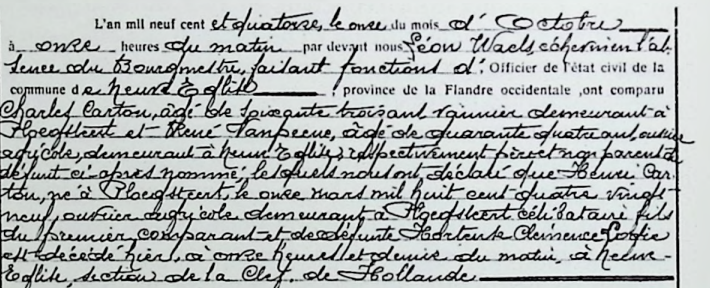 L'an mil neuf cent et quatorze, le onze du mois d' Octobre
à onze heures du matin par devant nous Léon Waels, échevin en l'ab-
sence du Bourgmestre, faisant fonctions d' Officier de l'état civil de la
commune de Neuve Eglise, province de la Flandre occidentale, ont comparu
Charles Carton, âgé de soixante trois ans, vannier demeurant à
Ploegsteert et René Vanpeene, âgé de quarante quatre ans, ouvrier
agricole, demeurant à Neuve Eglise, respectivement père et non parent du
défunt ci-après nommé, lesquels nous ont déclaré que Henri Car-
ton, né à Ploegsteert, le onze mars mil huit cent quatre vingt
neuf, ouvrier agricole demeurant à Ploegsteert célibataire fils
du premier comparant et de défunte Hortense Clémence
est décédé hier, à onze heures et demie du matin, à Neuve-
Eglise, section de la Clef de Hollande